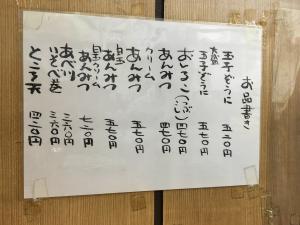 お品書き
玉子ぞうに 五二〇円
大盛
玉子ぞうに 五七〇円
おしるこ(つぶ)(こし) 四七〇円
あんみつ 四七〇円
クリーム
あんみつ 五七〇円
白玉
あんみつ 五七〇円
白玉クリーム
あんみつ 七二〇円
あべ川 三六〇円
いそべ巻 三六〇円
ところ天 四二〇円